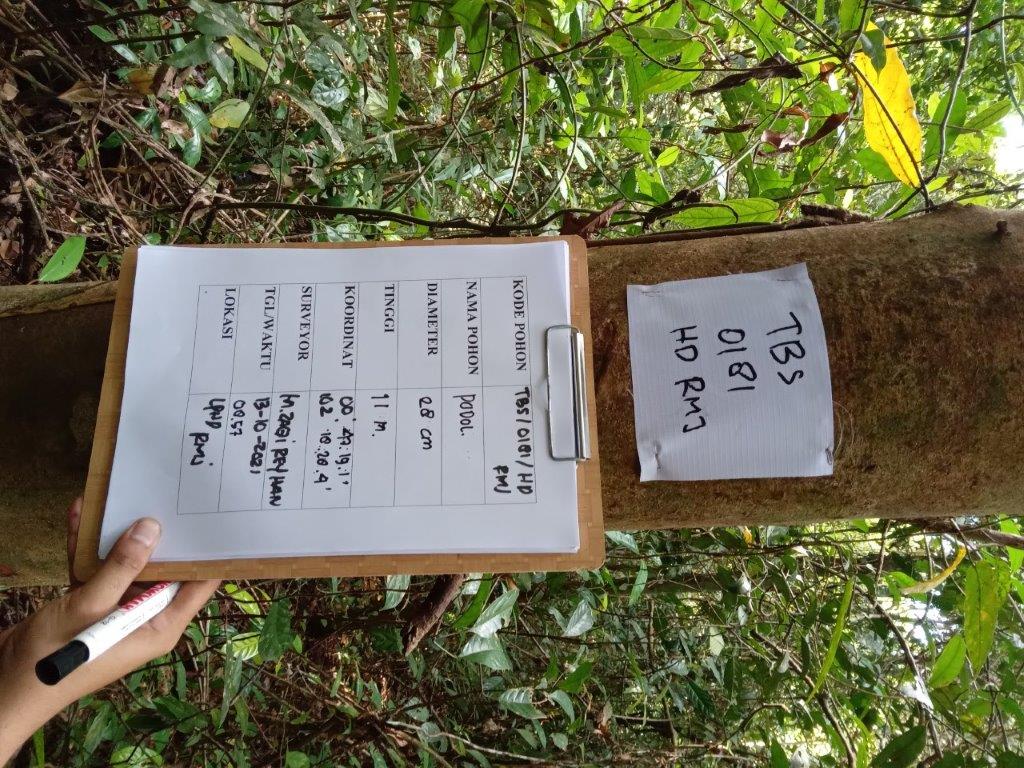 TBS
0181
HD RMJ
KODE POHON TBS/0181/HD
RMJ
NAMA POHON PODOL.
DIAMETER 28 cm
TINGGI 11 m.
KOORDINAT 00° 47.19.1'
102° 18.28.4'
SURVEYOR M.ZAQI REYHAN
TGL/WAKTU 13-10-2021
08.57
LOKASI LPHD
RMJ